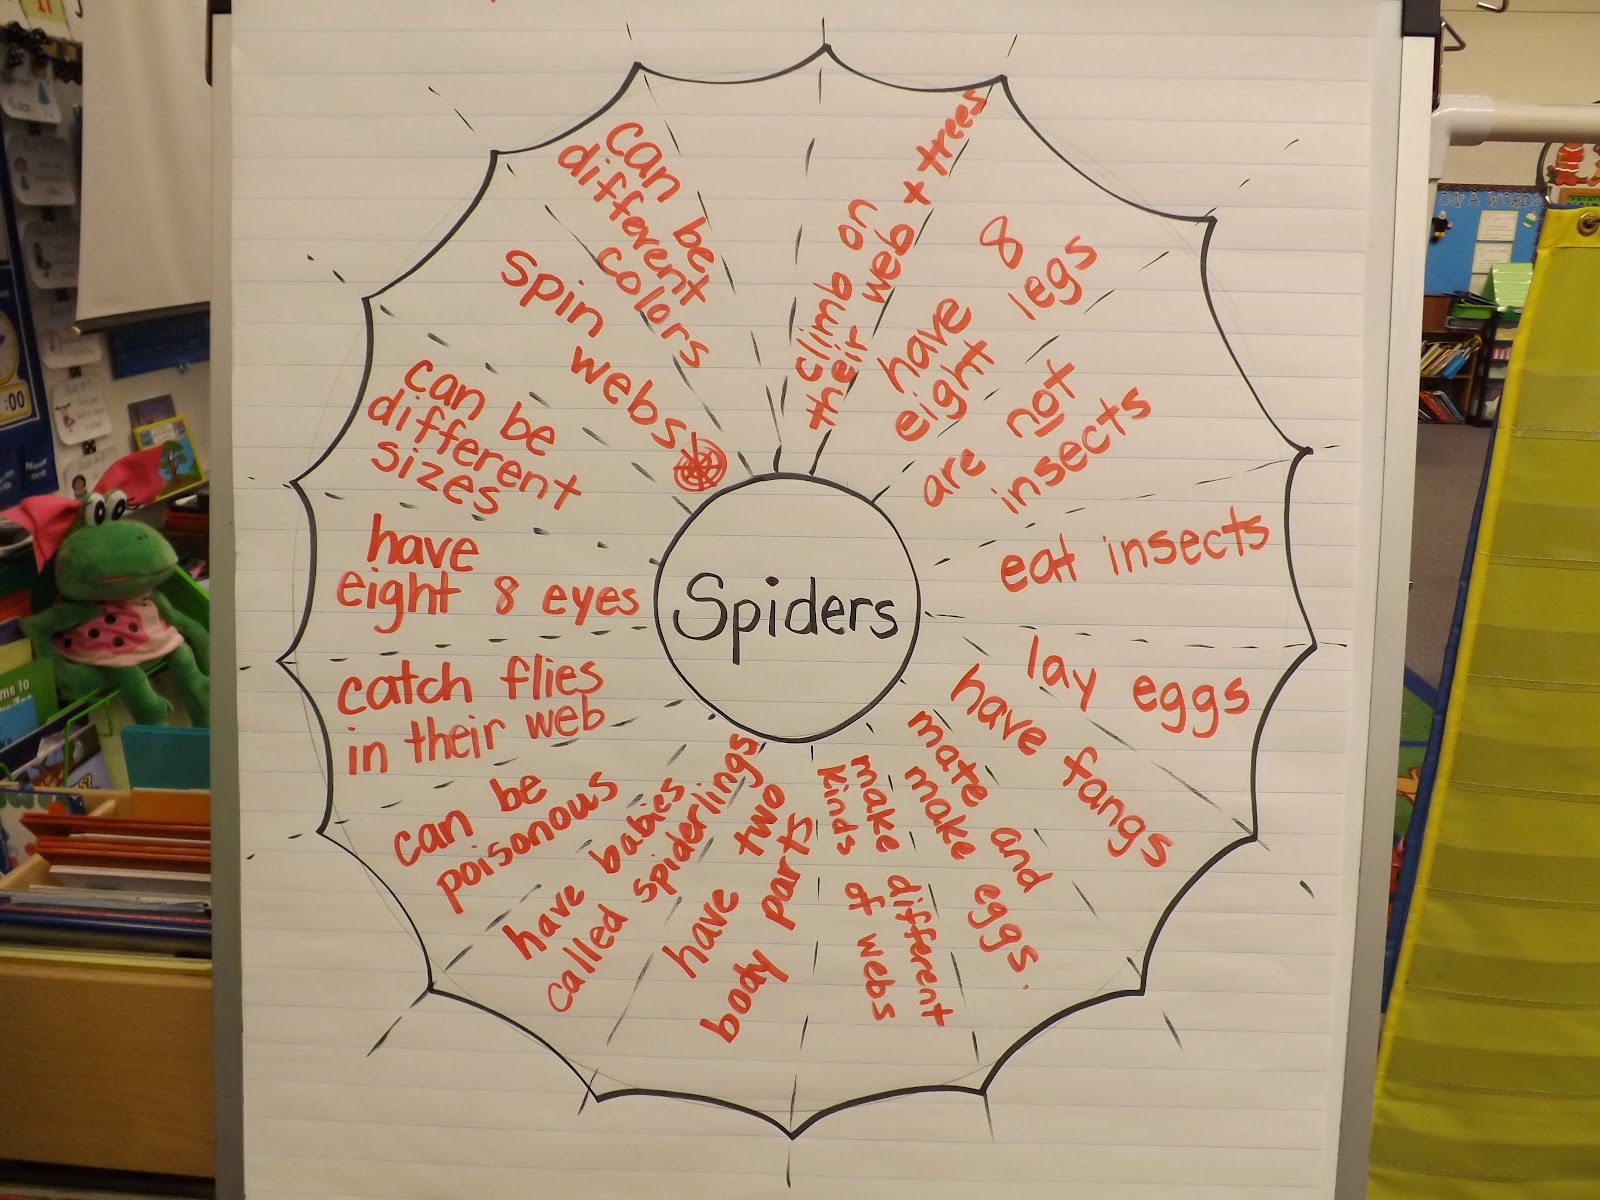 Spiders
climb on
their web + trees
have 8
eight legs
are not
insects
eat insects
lay eggs
have fangs
mate and
make eggs.
make different
kinds of webs
have two
body parts
have babies
called spiderlings
can be
poisonous
catch flies
in their web
have
eight 8 eyes
can be
different
sizes
spin webs
can be
different
colors
ON A WORD?
:00